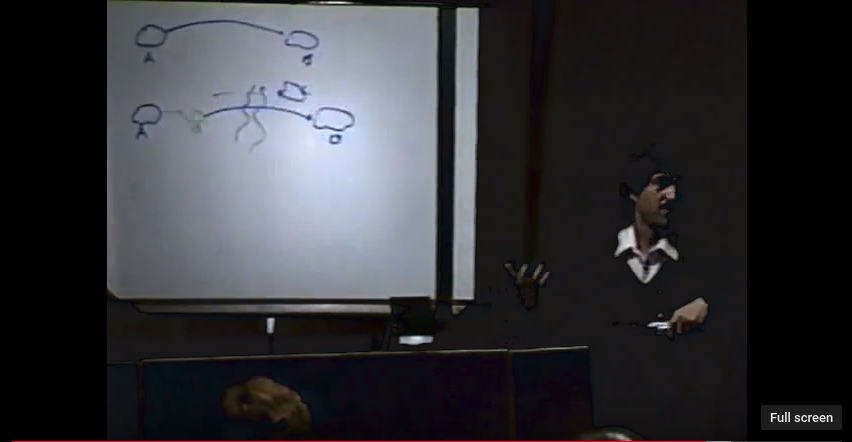 A B
A B
Full screen